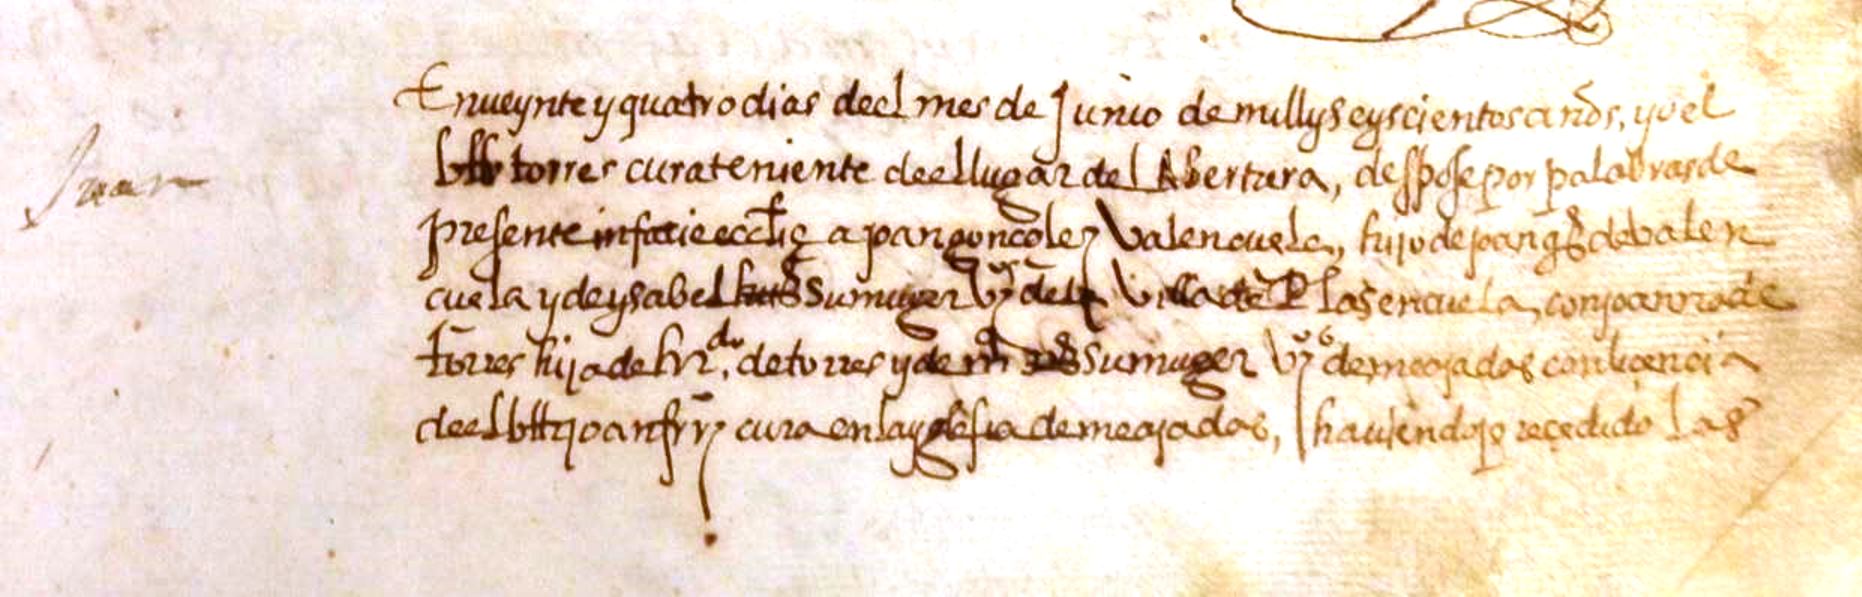 Juan
En ueynte y quatro dias deel mes de Junio de mill y seyscientos años, yo el
br torres cura teniente de el lugar del Abertura, despose por palabras de
presente in facie ecclie a joan gonçolez Valençuela, hijo de joan gs de balen
çuela y de ysabel su muger Vs de la Villa de Plasençuela, con joanna de
torres hija de hrdo, de torres y de su muger Vos de meajadas con licencia
de el br joan frz cura en la yglesia de meajadas, haviendo precedido las